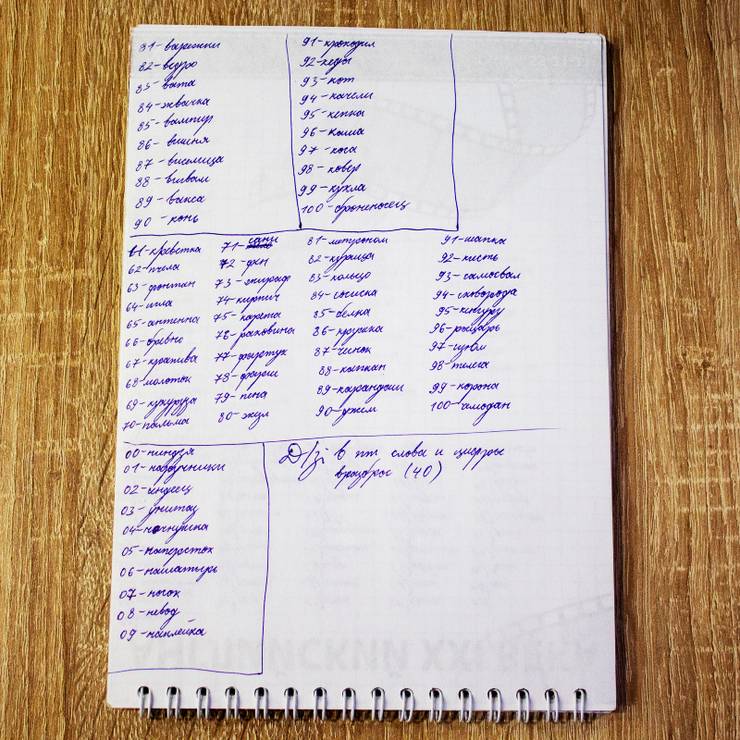 81-варежки
82-ведро
83-вата
84-жвачка
85-вампир
86-вишня
87-виселица
88-вигвам
89-вакса
90-конь
91-крокодил
92-кеды
93-кот
94-качели
95-кепка
96-каша
97-кога
98-ковер
99-кукла
100-броненосец
61-креветка
62-пчела
63-фонтан
64-игла
65-антенна
66-бревно
67-крапива
68-молоток
69-кукуруза
70-пальма
71-сани
72-фен
73-жираф
74-кирпич
75-карета
76-раковина
77-фартук
78-
79-пена
80-жук
81-метроном
82-курица
83-кольцо
84-сосиска
85-белка
86-кружка
87-чеснок
88-капкан
89-карандаш
90-джем
91-шапка
92-кисть
93-самосвал
94-сковорода
95-кенгуру
96-рыцарь
97-изюм
98-телега
99-корона
100-чемодан
00-ниндзя
01-наручники
02-индеец
03-унитаз
04-ночнушка
05-наперсток
06-нашатырь
07-ногок
08-невод
09-наклейка
Д/з: в пт слова и цифры
вразброс (40)
АНГЛИЙСКИЙ XXI ВЕКА